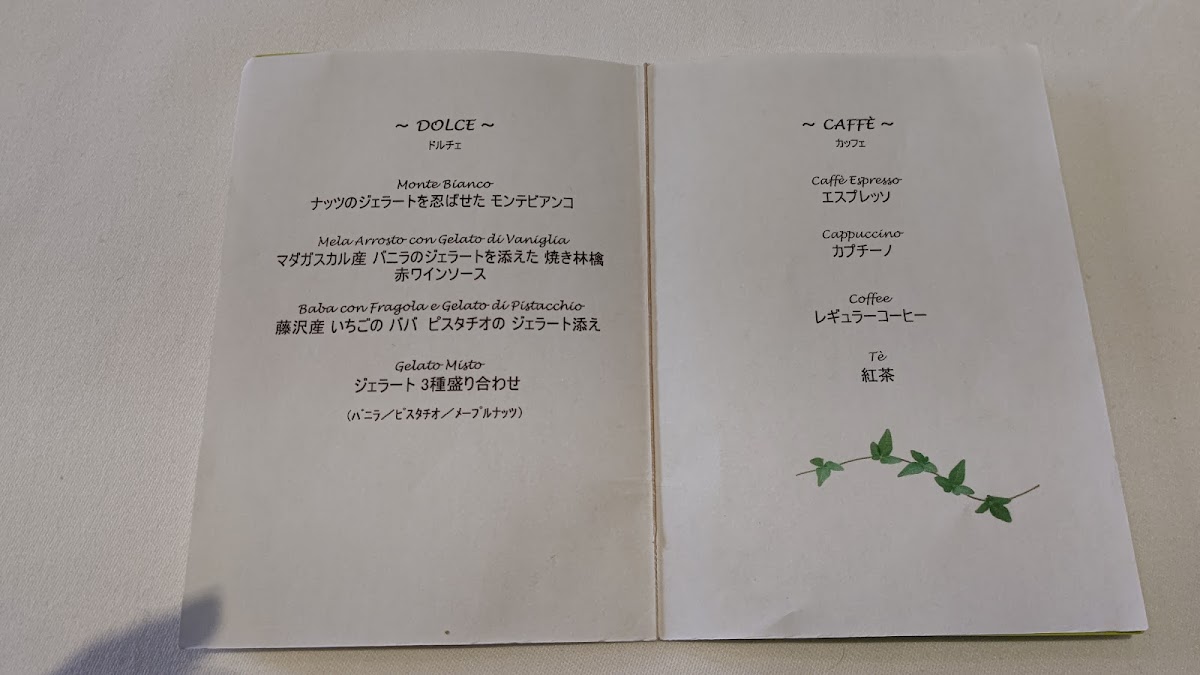 ~ DOLCE ~
ドルチェ
Monte Bianco
ナッツのジェラートを忍ばせた モンテビアンコ
Mela Arrosto con Gelato di Vaniglia
マダガスカル産 バニラのジェラートを添えた 焼き林檎
赤ワインソース
Baba con Fragola e Gelato di Pistacchio
藤沢産 いちごの ババ ピスタチオの ジェラート添え
Gelato Misto
ジェラート 3種盛り合わせ
(バニラ/ピスタチオ/メープルナッツ)
~ CAFFÈ ~
カッフェ
Caffè Espresso
エスプレッソ
Cappuccino
カプチーノ
Coffee
レギュラーコーヒー
Tè
紅茶